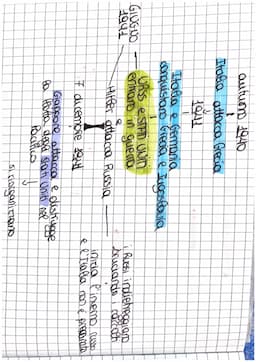 autunno 1940
Italia attacca Grecia
1941
Italia e Germania
conquistano Grecia e Iugoslavia
GIUGNO
1941
URSS e STATI UNITI
entrano in guerra
Hitler attacca Russia
i Russi indietreggiano
bruciando i raccolti
inizia l'inverno russo
e l'Italia non è preparata
7 dicembre 1941
Giappone attacca e distrugge
la flotta degli Stati Uniti nel
Pacifico